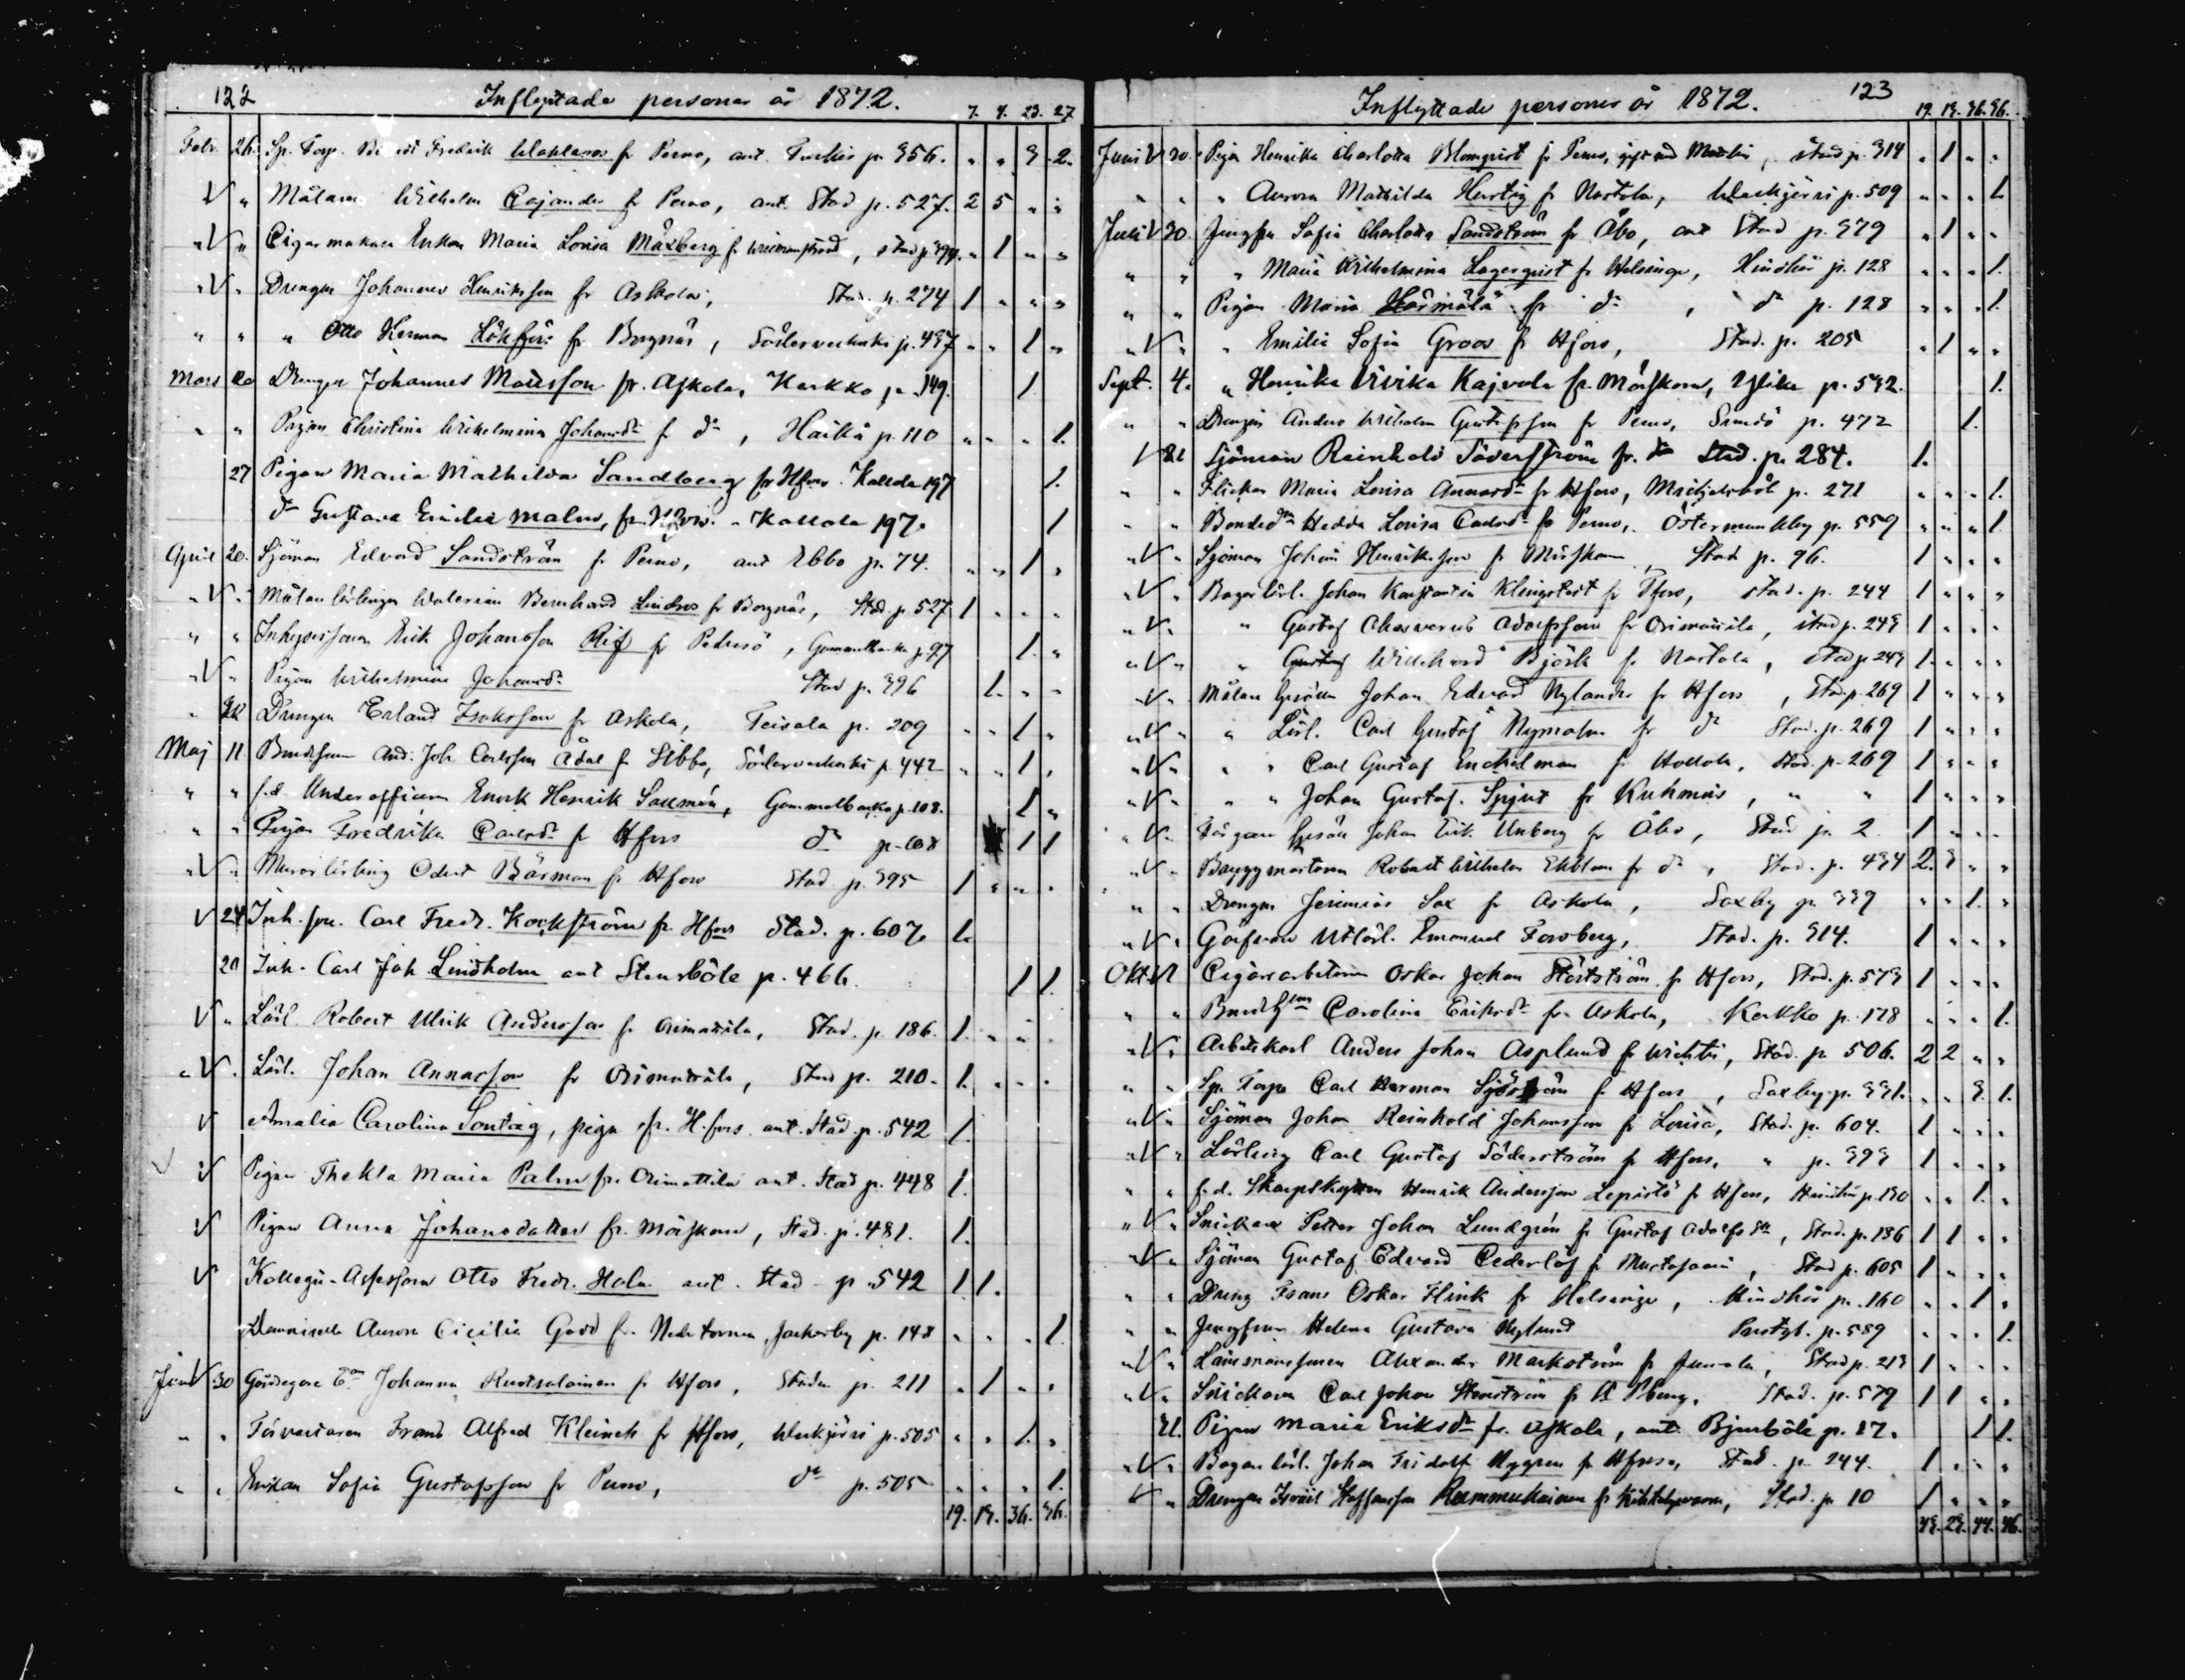 122 Inflyttade personer år 1872. 7. 4. 23. 27
Febr. 26. Sp. Torp. Fredrik Wahlman fr Perno, ant. p. 356. " " 3 2
V " Målaren Wilhelm Cajander fr Perno, ant. Stad p. 527. 2 5 " "
" V " Cigarrmakare Enkan Maria Lovisa Måxberg fr, stad p. 394. " 1 " "
" V " Drengen Johannes Henriksson fr Askola, Stad. p. 274 1 " " "
" " " Otto Herman Lökfors fr Borgnäs, Söderveckoski p. 437 " " 1 "
Mars 20 Drengen Johannes Mausson fr. Askola, Karkko p. 149. 1.
" " Pigan Christina Wilhelmina Johansdr f do, Haiko p. 110 " " " 1.
27 Pigan Maria Mathilda Sandberg fr Hfors. Kallola 197 1.
do Gustava Emilia Malm, fr. Hfors. " Kallola 197. 1
April 20. Sjöman Edvard Sandström fr Perno, ant Ebbo p. 74. " " 1 "
" V " Målarlärlingen Walerian Bernhard Lindros fr Borgnäs, Stad. p. 527 1 " " "
" " Inhysessonen Erik Johansson Rif fr Pedersö, Gammelbacka p. 97 1. "
" V " Pigan Wilhelmina Johansdr Stad p. 396 1. " "
" Drengen Erland Isaksson fr Askola, Teisala p. 209 " " 1 "
Maj 11 Bondesonen And. Joh. Carlsson Ådal fr Sibbo, Söderveckoski p. 442 " " 1 "
" " f.d. Underofficern Enock Henrik Saxman, Gammelbacka p. 108. 1 "
" " Pigan Fredrika Carlsdr fr Hfors do p. 108 1 1
" V " Murarlärling Odert Bärman fr Hfors Stad p. 395 1 " " "
V 24 Inh. son. Carl Fredr. Kockström fr Hfors Stad. p. 607. 1.
20 Inh. Carl Joh. Lindholm ant Stensböle p. 466. 1 1.
V " Lärl. Robert Ulrik Andersson fr Orimattila, Stad. p. 186. 1. " " "
" V " Lärl. Johan Annasson fr Orimattila, Stad p. 210. 1. " " "
V Amalia Carolina Sontag, piga fr. H.fors. ant. Stad. p. 542 1.
V Pigan Thekla Maria Palm fr. Orimattila ant. Stad p. 448 1.
V Pigan Anna Johansdotter fr. Mörskom, Stad. p. 481. 1.
V Kollegii-Assessorn Otto Fredr. Holm ant. Stad p. 542 1. 1.
Demoiselle Aurora Cicilia Gadd fr. Nedertorneå, Jackarby p. 148 " " " 1.
Juni V 30 Gårdegare Johanna Ruotsalainen fr Hfors, Staden p. 211 " 1 " "
" " Förvaltaren Frans Alfred Kleineh fr Hfors, Weckjärvi p. 505 " " 1. "
" " Enkan Sofia Gustafsson fr Perno, do p. 505 " " " 1.
19. 19. 36. 36.
Inflyttade personer år 1872. 123 19. 19. 36. 36.
Juni V 30. Pigan Henrika Charlotta Blomqvist fr Perno, gift med, stad p. 314 " 1 " "
" " " Aurora Mathilda Hurtig fr Nastola, Weckjärvi p. 509 " " " 1.
Juli V 30. Jungfru Sofia Charlotta Sandström fr Åbo, ant Stad p. 379 " 1 " "
" " " Maria Wilhelmina Lagerqvist fr Helsinge, Hindhår p. 128 " " " 1.
" " Pigan Maria Härmälä fr do, do p. 128 " " " 1.
" V " " Emilia Sofia Groos fr Hfors, Stad. p. 205 " 1 " "
Sept. 4. " Henrika Vivika Kajvola fr. Mörskom, Ylike p. 532. 1.
" " Drengen Anders Wilhelm Gustafsson fr Perno, Sundö p. 472 1.
V 21 Sjöman Reinhold Söderström fr. do Stad. p. 284. 1.
" " Flickan Maria Lovisa Annasdr fr Hfors, Mickelsböl p. 271 " " " 1.
" " Bondedn Hedda Lovisa Carlsdr fr Perno, Östermunkby p. 559 " " " 1
" V " Sjöman Johan Henriksson fr Mörskom, Stad p. 96. 1 " " "
" V " Bagarlärl. Johan Konstantin Klingstedt fr Hfors, stad. p. 244 1 " " "
" V " " Gustaf Ahasverus Adolfsson fr Orimattila, stad p. 243 1 " " "
" V " " Gustaf Willehard Björk fr Nastola, stad p. 243 1. " " "
" V " Målare Gesällen Johan Edvard Nylander fr Hfors, Stad p. 269 1 " " "
" V " " Lärl. Carl Gustaf Nyman fr do Stad. p. 269 1 " " "
" V " " " Carl Gustaf Enckelman fr Hollola, Stad. p. 269 1 " " "
" V " " " Johan Gustaf Spjut fr Kuhmois, " " 1 " " "
" V " Färgare Gesäll Johan Erik Unberg fr Åbo, Stad p. 2 1 " " "
" V " Byggmästaren Robert Wilhelm Ekblom fr do, Stad. p. 434 2. 3 " "
" " Drengen Jeremias Sax fr Askola, Saxby p. 339 " " 1. "
" V " Garfvare Utlärl. Emanuel Forsberg, Stad. p. 314. 1 " " "
Okt. V 1 Cigarrarbetaren Oskar Johan Störtström fr Hfors, Stad. p. 573 1 " " "
" " Carolina Eriksdr fr Askola, Karkko p. 178 " " " 1.
" V " Arbetskarl Anders Johan Asplund fr Wichtis, Stad. p. 506. 2 2 " "
" " Sp. Torp. Carl Herman Sjöström fr Hfors, Saxby p. 331. " " 3. 1.
" V " Sjöman Johan Reinhold Johansson fr Lovisa, Stad. p. 604. 1 " " "
" V " Lärling Carl Gustaf Söderström fr Hfors, " p. 393 1 " " "
" " f.d. Skarpskytten Henrik Andersson Lepistö fr Hfors, p. 130 " " 1. "
" V " Snickare Petter Johan Lundgrén fr Gustaf Adolfs, Stad. p. 186 1 1 " "
" V " Sjöman Gustaf Edvard Cederlöf fr Mustasaari, Stad p. 605 1 " " "
" " Dreng Frans Oskar Flink fr Helsinge, Hindhår p. 160 " " 1 "
" " Jungfrun Helena Gustava Nylund Prestgt. p. 589 " " " 1.
" V " Länsmanssonen Alexander Markström fr Jumala, Stad p. 213 1 " " "
" V " Snickaren Carl Johan Stenström fr, Stad. p. 579 1 1 " "
21. Pigan Maria Eriksdr fr. Askola, ant. Bjurböle p. 87. 1 1.
" V " Bagarlärl. Johan Fridolf Nygren fr Hfors, Stad. p. 244. 1 " " "
V " Drengen Israil Staffansson Rummukainen fr, Stad. p. 10 1 " " "
43. 29. 44. 46.